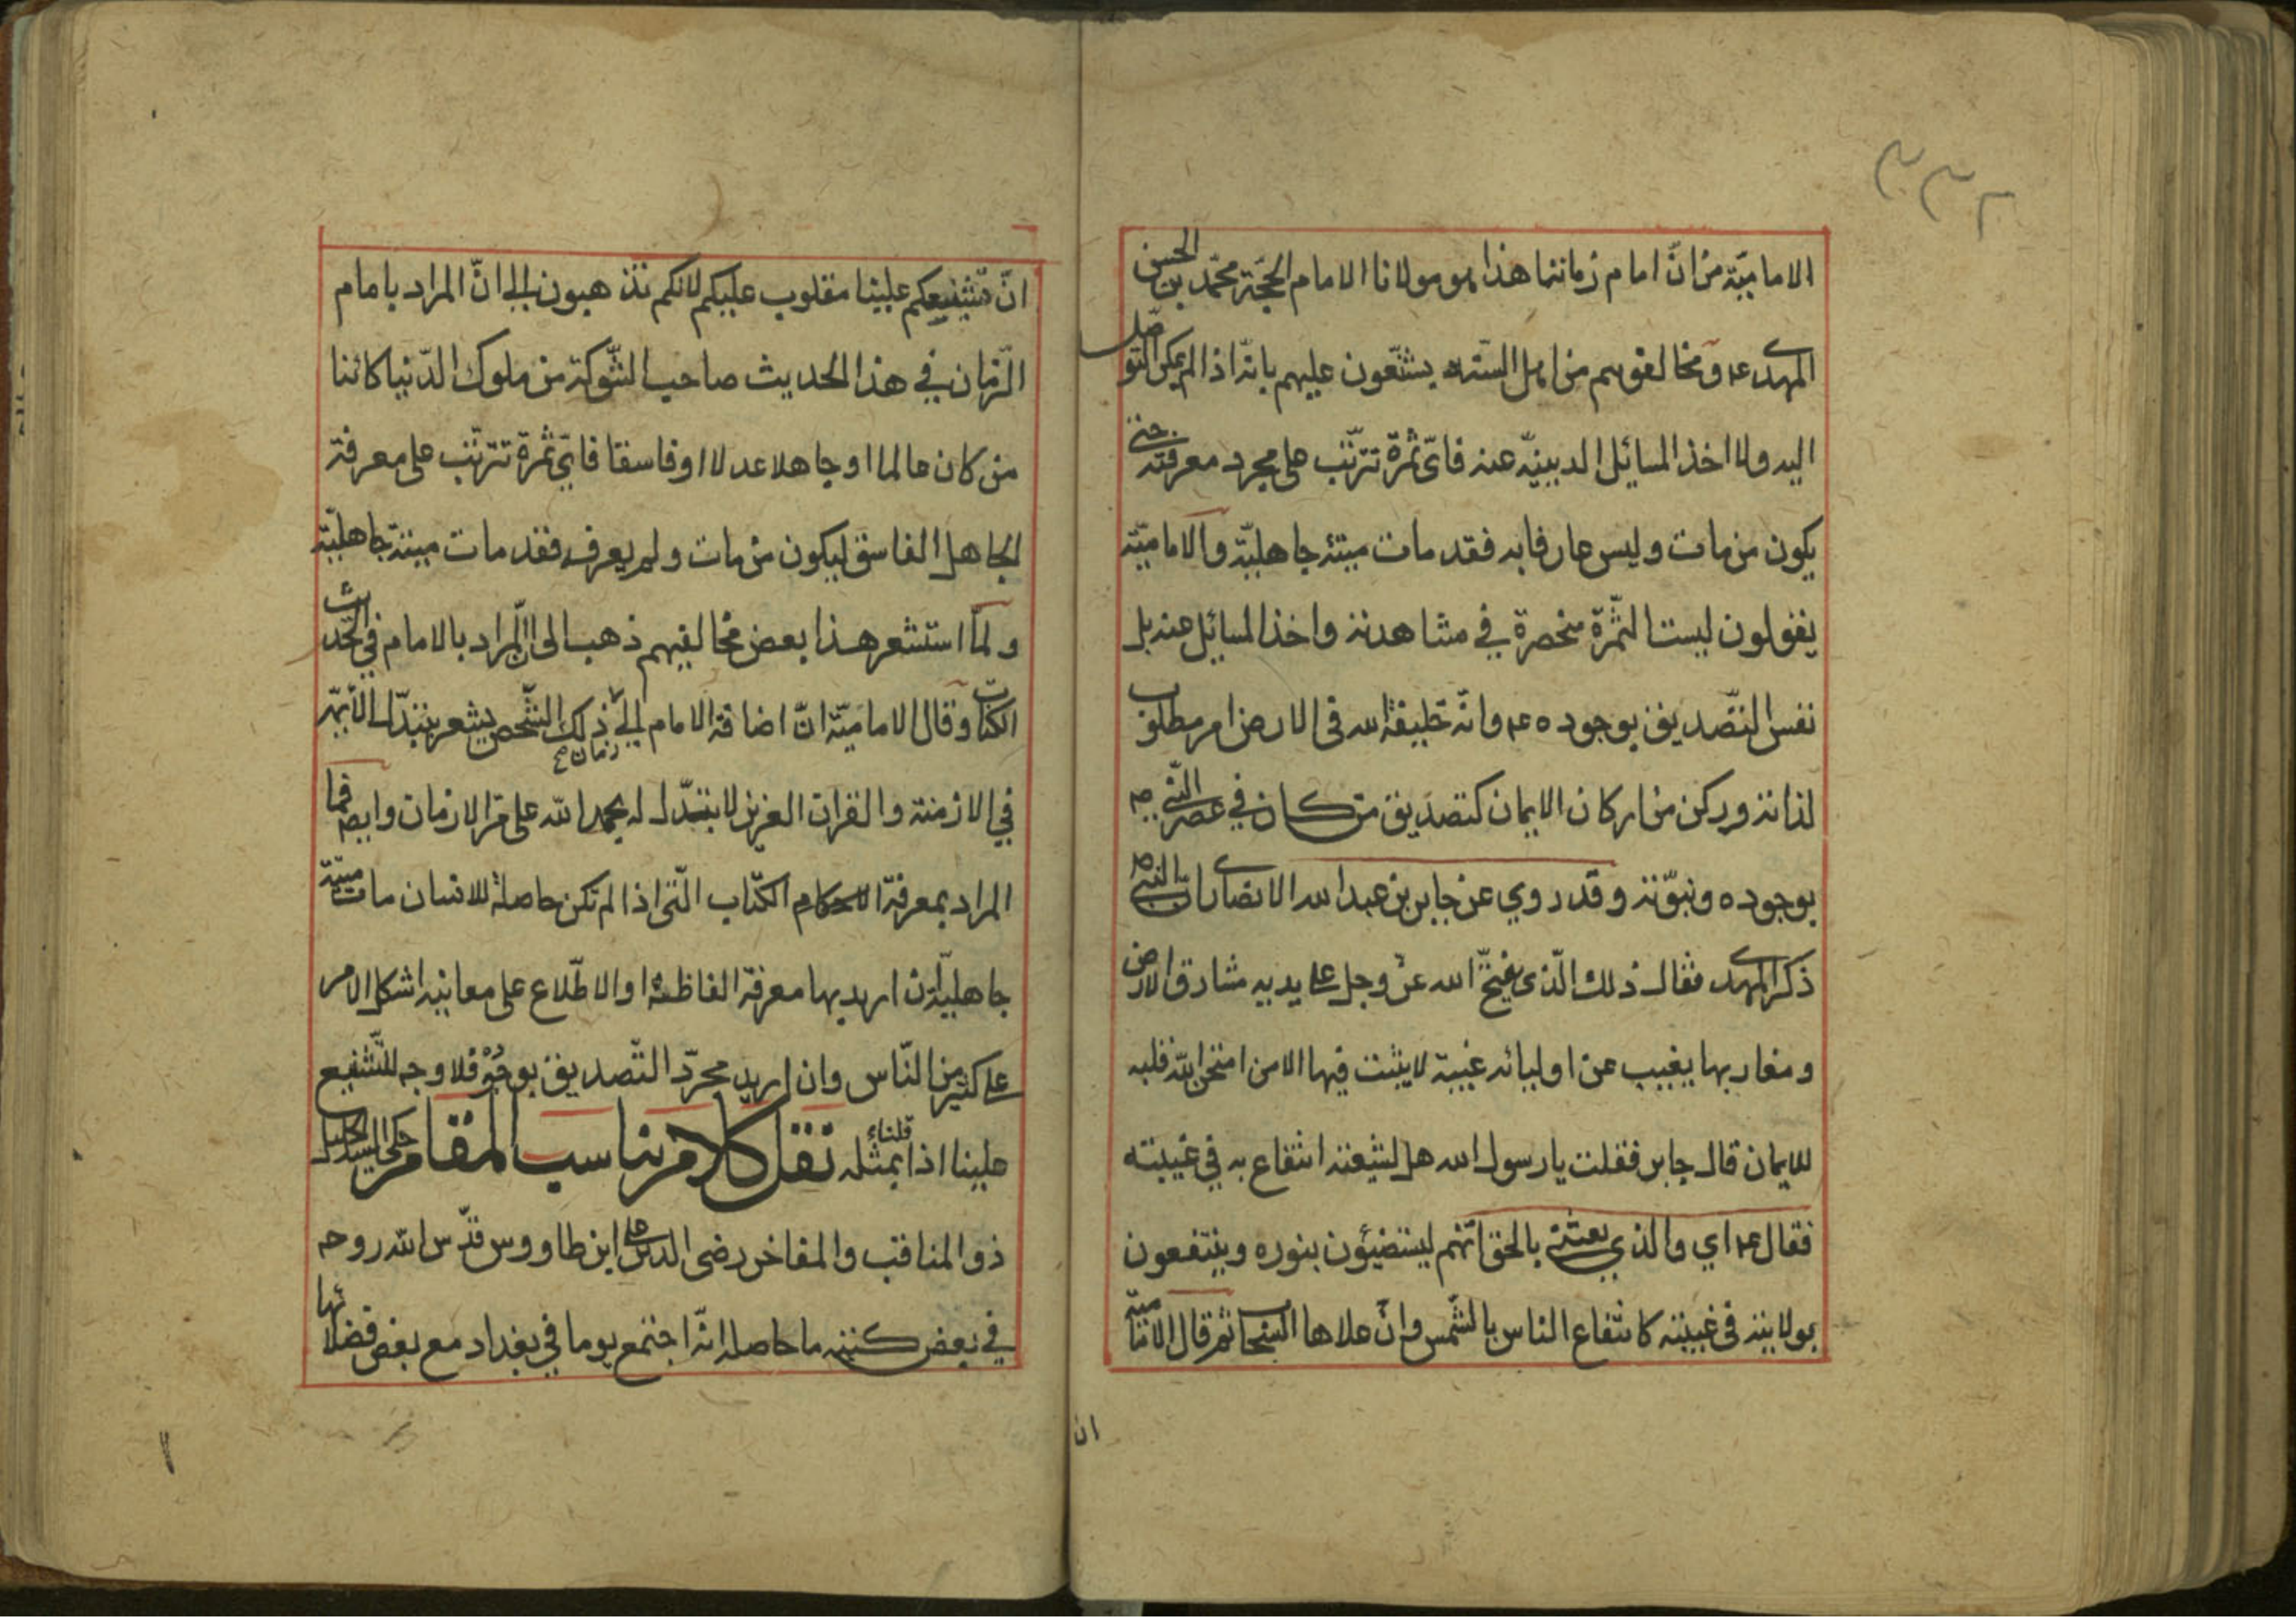 ٢٣٣
الاماميّة من انّ امام زماننا هذا هو مولانا الامام الحجّة محمّد بن الحسن
المهدى ع٤ ومخالفوهم من اهل السّنّة يشنّعون عليهم بانّه اذا لم يمكن التوصّل
اليه ولا اخذ المسائل الدينيّه عنه فاىّ ثمرة تترتّب على مجرد معرفته حتى
يكون من مات وليس عارفا به فقد مات ميتة جاهليّة والاماميّة
يقولون ليست الثّمرة منحصرة في مشاهدته واخذ المسائل عنه بل
نفس التّصديق بوجوده ع٤ وانّه خليفة الله فى الارض امر مطلوب
لذاته وركن من اركان الايمان كتصديق من كان في عصر النّبي ص
بوجوده ونبوّته وقد روي عن جابر بن عبدالله الانصارى انّ النّبي ص
ذكر المهدى فقال ذلك الّذى يفتح الله عزّ وجل على يديه مشارق الارض
ومغاربها يغيب عن اوليائه غيبة لا يثبت فيها الا من امتحن الله قلبه
للايمان قال جابر فقلت يا رسول الله هل لشيعته انتفاع به في غيبته
فقال ع٤ اي والذي بعثنى بالحق انّهم ليستضيئون بنوره وينتفعون
بولايته فى غيبته كانتفاع الناس بالشّمس وانّ علاها السّحاب ثم قال الاماميّة
ان
انّ تشنيعكم علينا مقلوب عليكم لانكم تذهبون الى انّ المراد بامام
الزّمان في هذا الحديث صاحب الشّوكة من ملوك الدّنيا كائنا
من كان عالما او جاهلا عدلا او فاسقا فايّ ثمرة تترتّب على معرفة
الجاهل الفاسق ليكون من مات ولم يعرفه فقد مات ميتة جاهليّة
ولمّا استشعر هذا بعض مخالفيهم ذهب الى انّ المراد بالامام في الحديث
الكتاب وقال الاماميّة انّ اضافة الامام الى زمان ذلك الشّخص يشعر بتبدّل الائمّة
في الازمنة والقران العزيز لا يتبدّل له بحمد الله على مرّ الازمان وايض فما
المراد بمعرفة الكتاب الّتى اذا لم تكن حاصلة للانسان مات ميتة
جاهليّة ان اريد بها معرفة الفاظه او الاطّلاع على معانيه اشكل الامر
على كثير من النّاس وان اريد مجرّد التّصديق بوجوده فلا وجه للتّشنيع
علينا اذا قلنا بمثله نقل كلام يناسب المقام حكى السيد الجليل
ذو المناقب والمفاخر رضى الدين على ابن طاووس قدّس الله روحه
في بعض كتبه ما حاصله انّه اجتمع يوما في بغداد مع بعض فضلائها